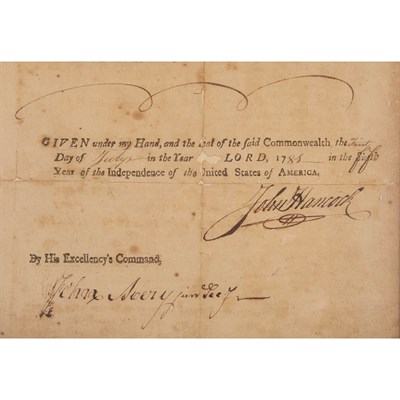 GIVEN under my Hand, and the Seal of the said Commonwealth, the
Day of July in the Year LORD, 1781 in the fifth
Year of the Independence of the United States of AMERICA.
John Hancock
By His Excellency's Command,
John Avery junr Secy